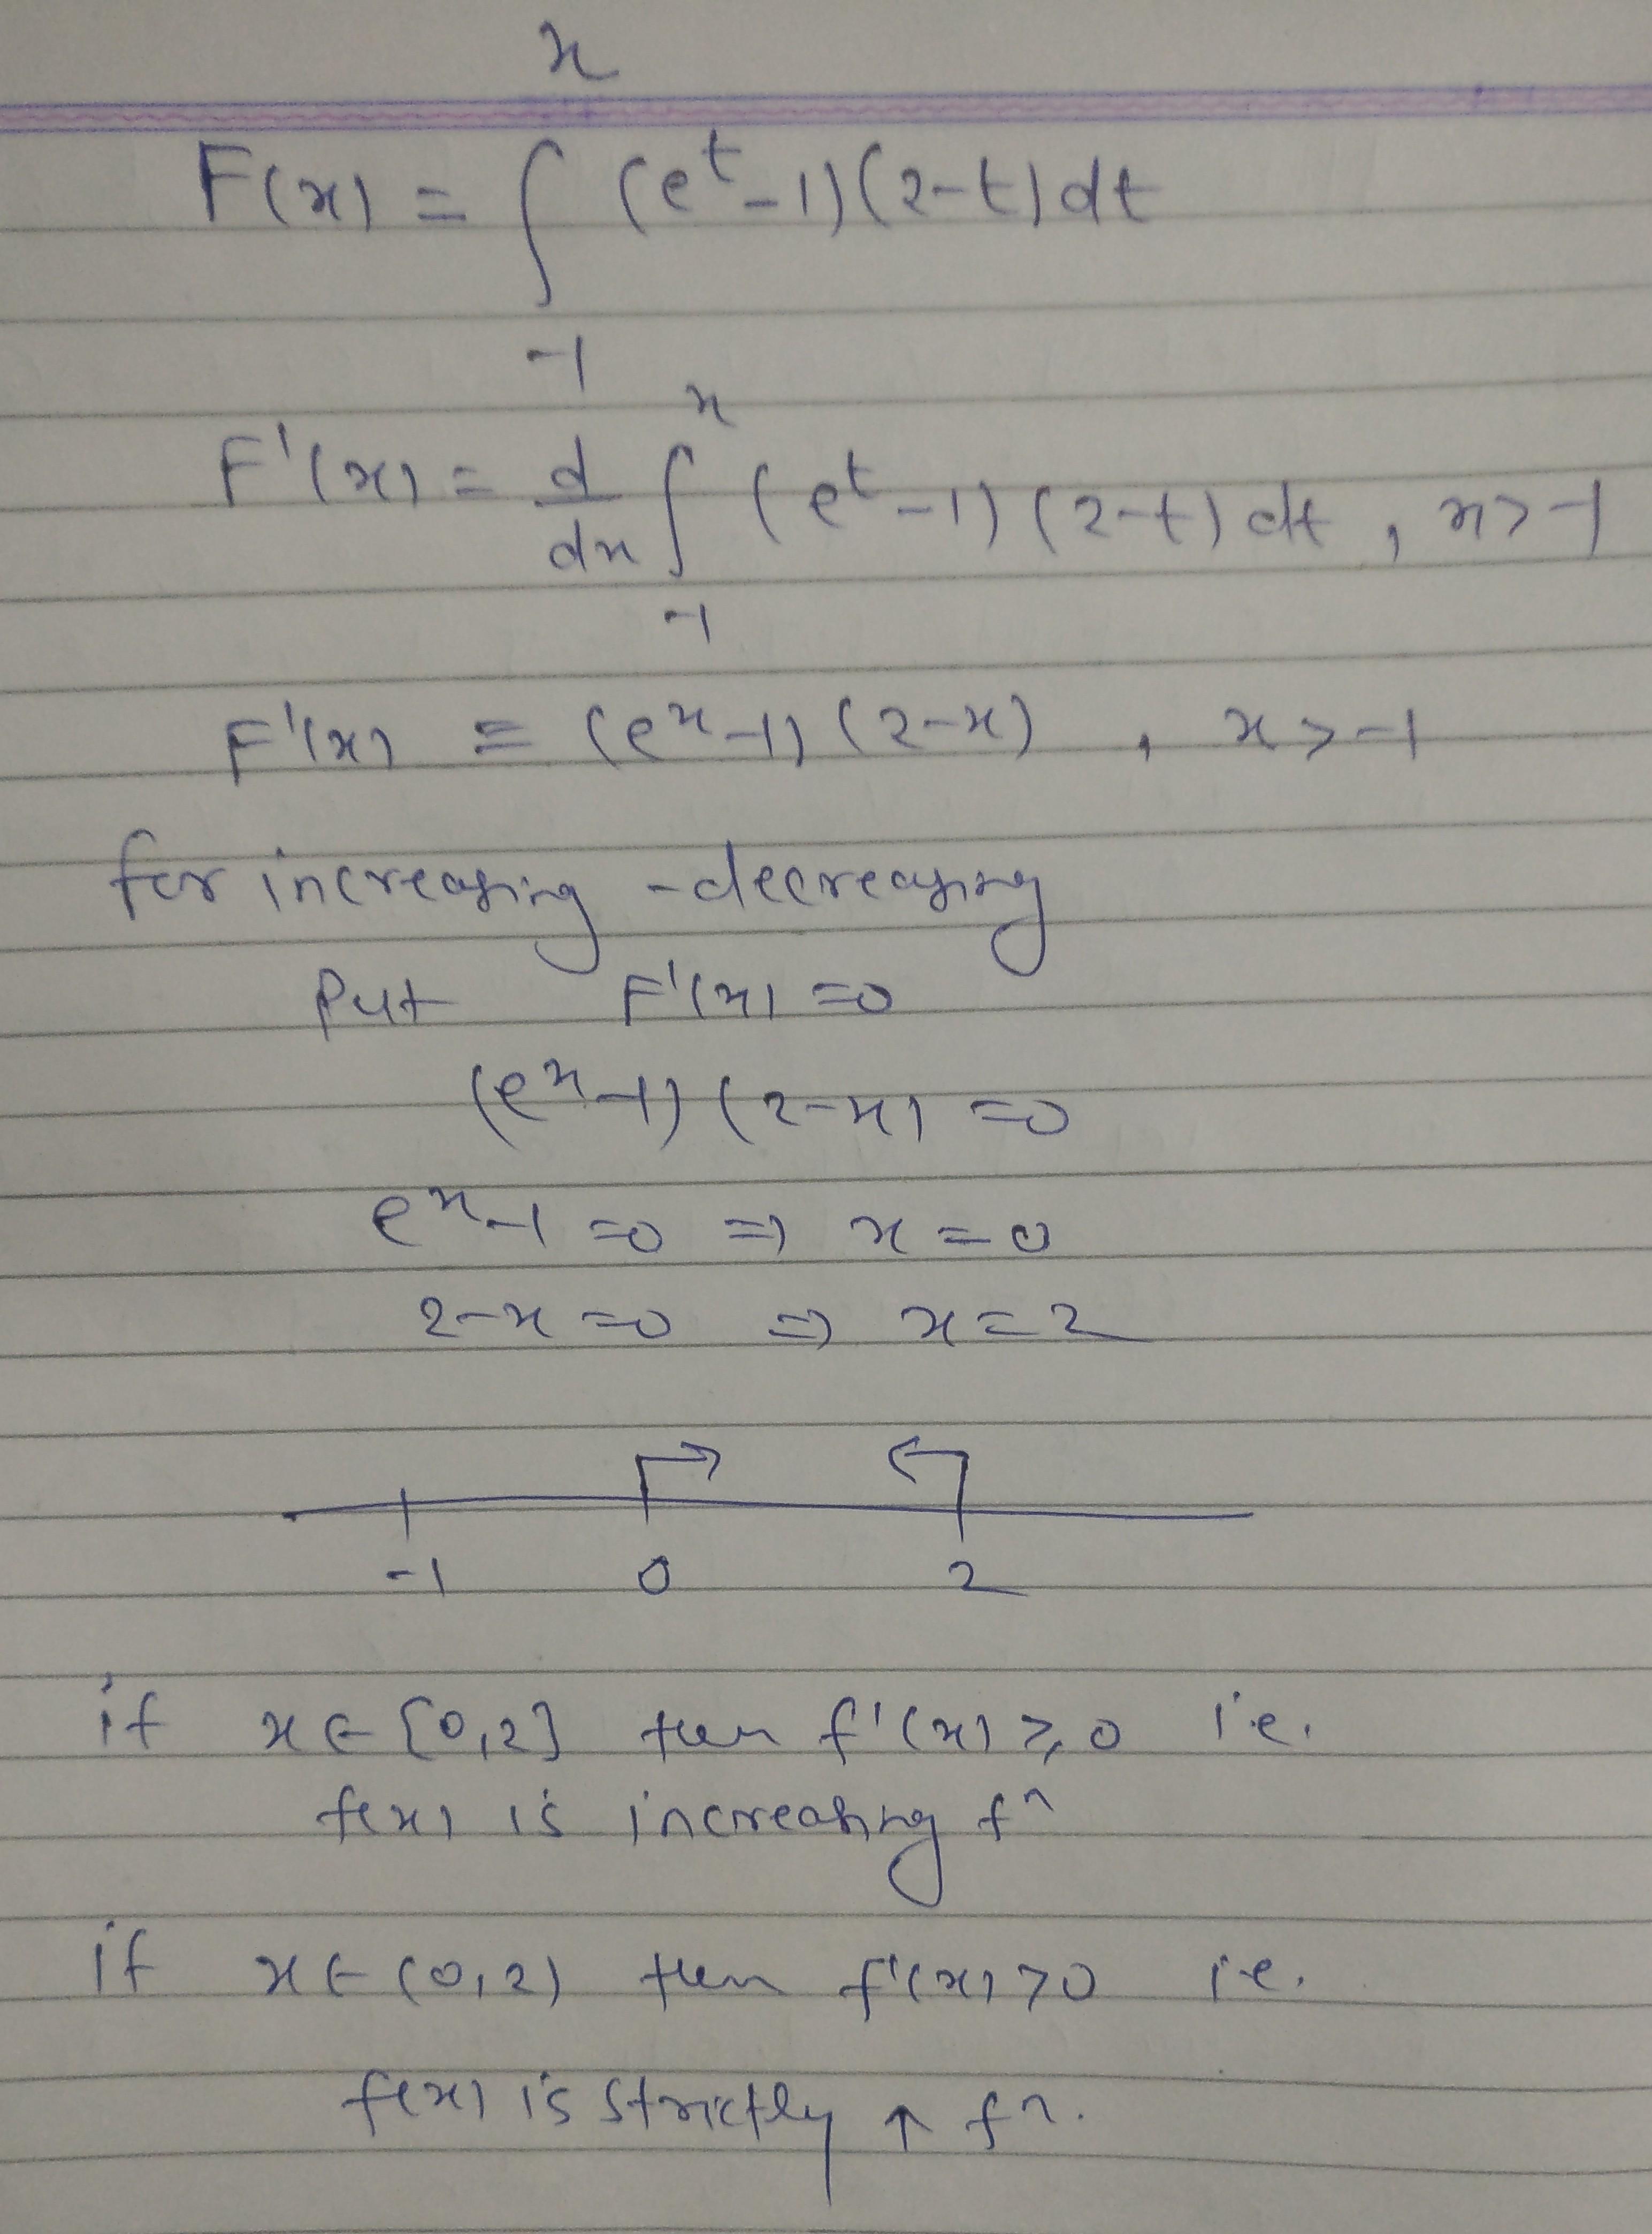 F(x) = ∫_{-1}^{x} (e^t - 1)(2-t) dt
F'(x) = d/dx ∫_{-1}^{x} (e^t - 1)(2-t) dt , x > -1
F'(x) = (e^x - 1)(2-x) , x > -1
for increasing - decreasing
Put F'(x) = 0
(e^x - 1)(2-x) = 0
e^x - 1 = 0 ⇒ x = 0
2-x = 0 ⇒ x = 2
-1 0 2
if x ∈ [0,2] then f'(x) ≥ 0 i.e.
f(x) is increasing fn
if x ∈ (0,2) then f'(x) > 0 i.e.
f(x) is strictly ↑ fn.